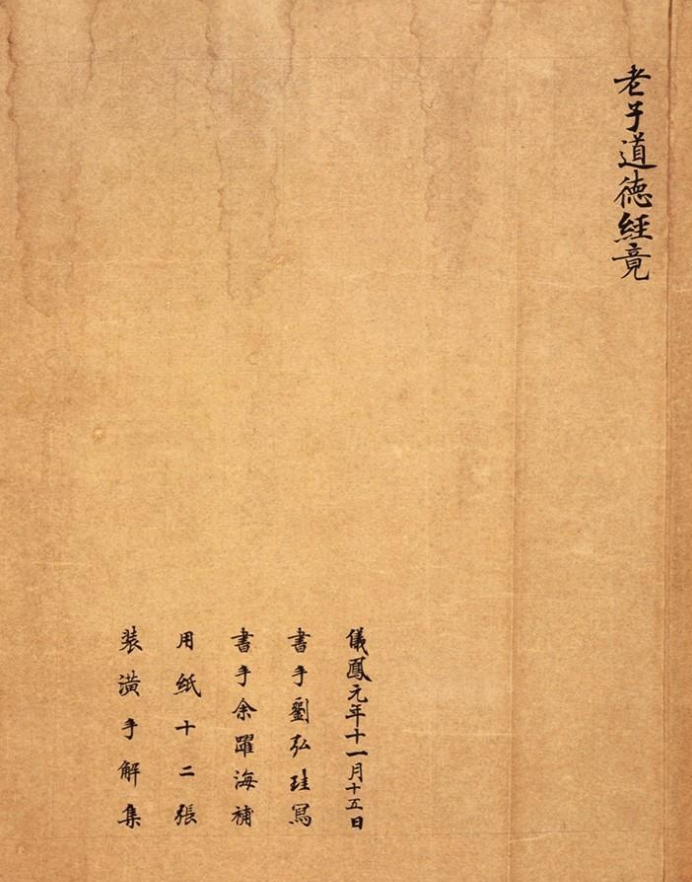 老子道德經竟
儀鳳元年十一月十五日
書手劉弘珪寫
書手余躍海補
用紙十二張
装潢手解集